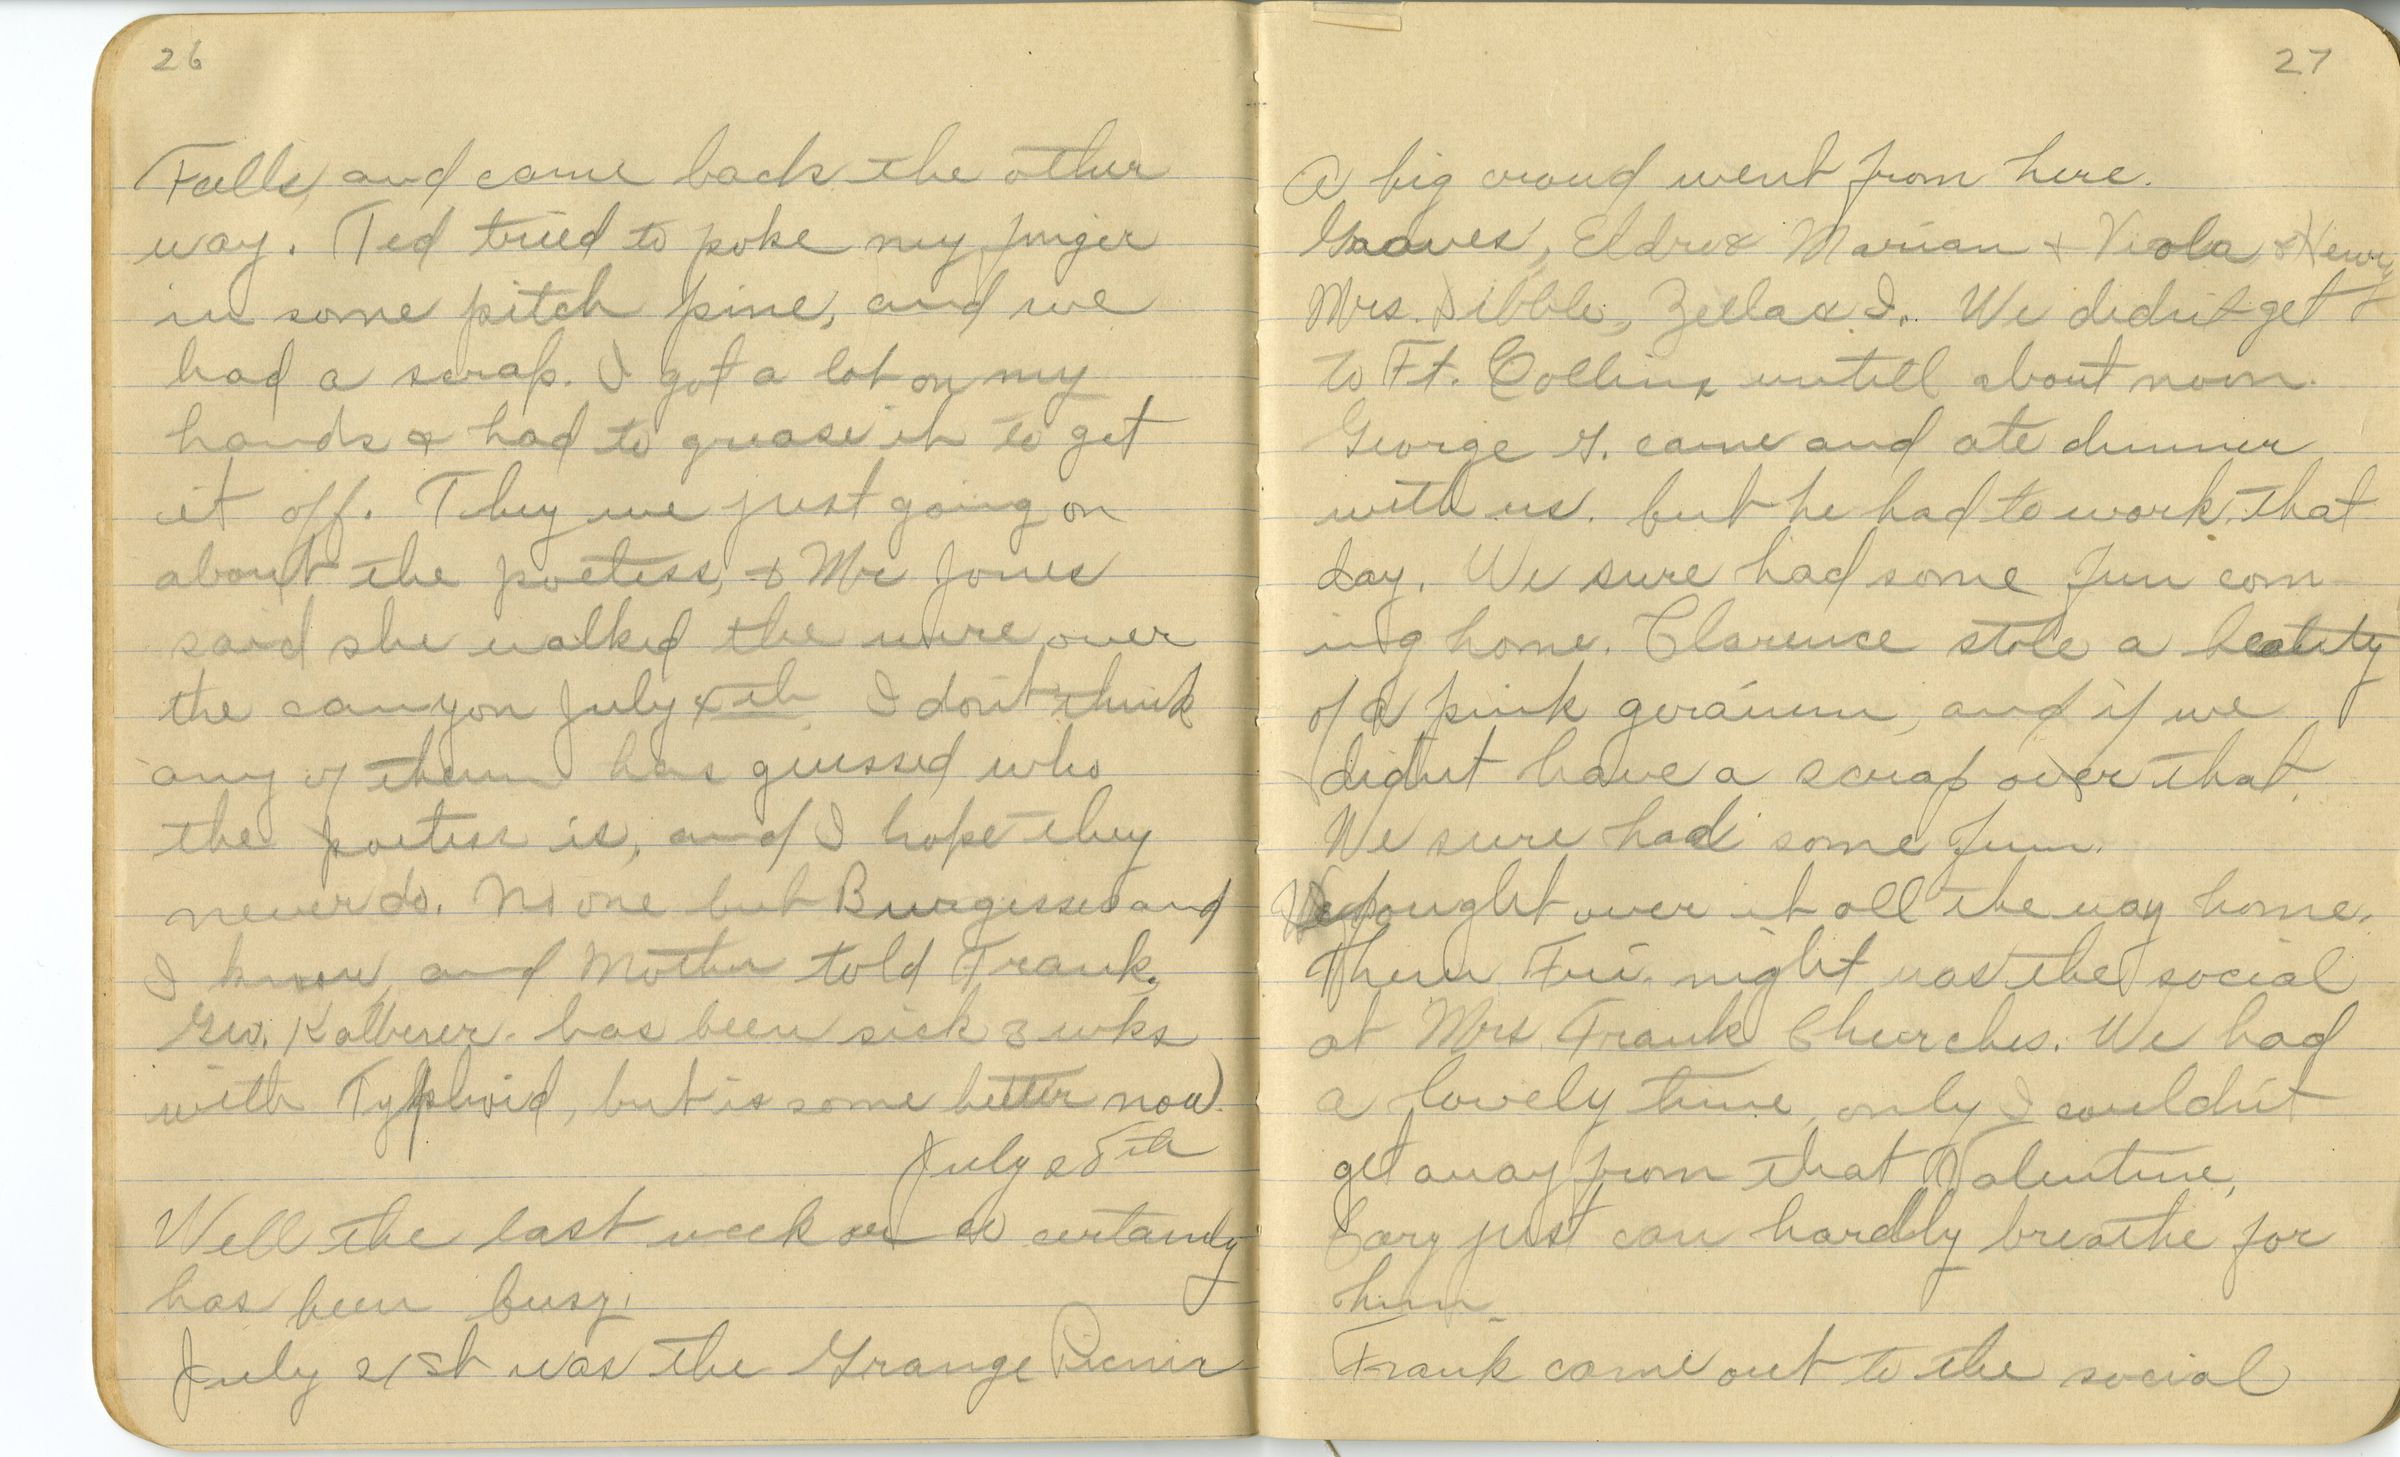 26
Falls, and came back the other
way. Ted tried to poke my finger
in some pitch pine, and we
had a scrap. I got a lot on my
hands & had to grease it to get
it off. They were just going on
about the poetess, & Mr Jones
said she walked the wire over
the canyon July 4th I don't think
any of them has guessed who
the poetess is, and I hope they
never do. No one but Burgesses and
I know, and Mother told Frank.
Geo. has been sick 3 wks
with Typhoid, but is some better now.
July 28th
Well the last week or so certainly
has been busy.
July 21st was the Grange Picnic
27
A big crowd went from here.
Graves, Eldred Marian & Viola & Henry
Mrs. Dibble, Zella & I. We didn't get
to Ft. Collins untill about noon.
George G. came and ate dinner
with us. but he had to work that
day. We sure had some fun com-
ing home. Clarence stole a beauty
of a pink geranium, and if we
didnt have a scrap over that.
We sure had some fun.
We fought over it all the way home.
Then Fri. night was the social
at Mrs. Frank Churches. We had
a lovely time, only I couldn't
get away from that Valentine,
Cary just can hardly breathe for
him.
Frank came out to the social